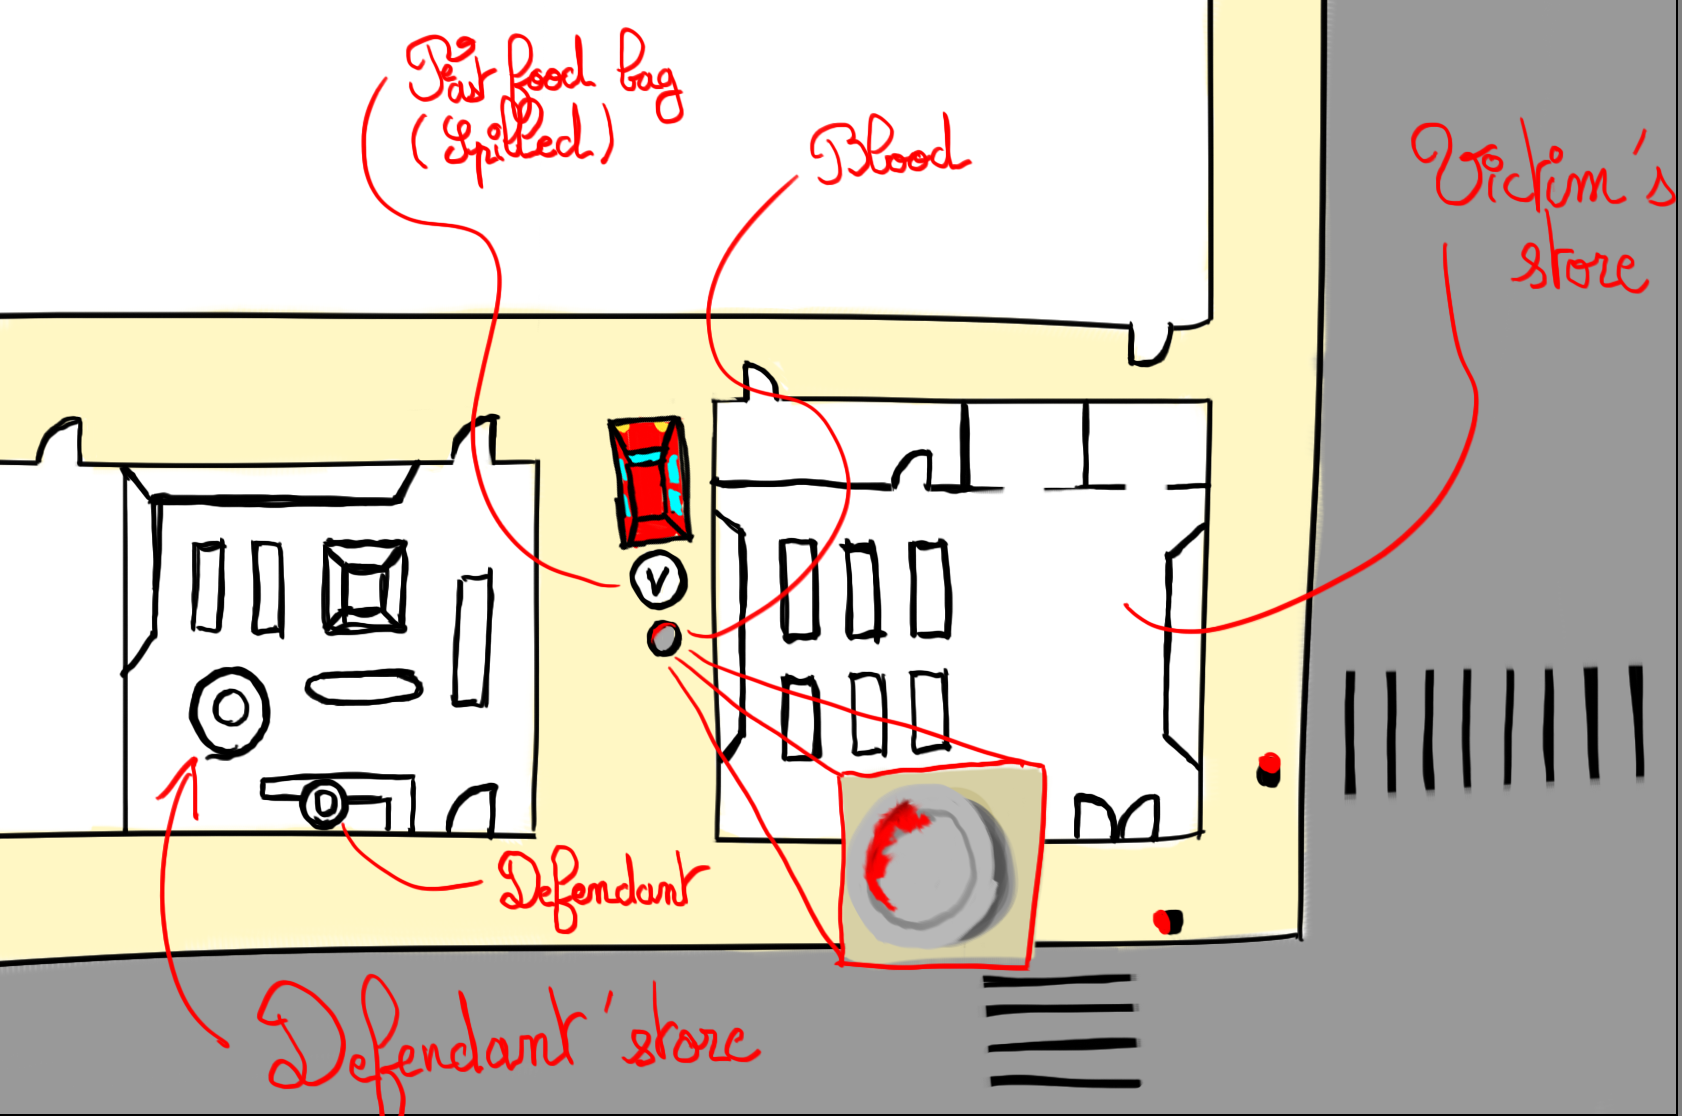 Fast food bag
(Spilled)
Blood
Victim's
store
V
D
Defendant
Defendant 'store